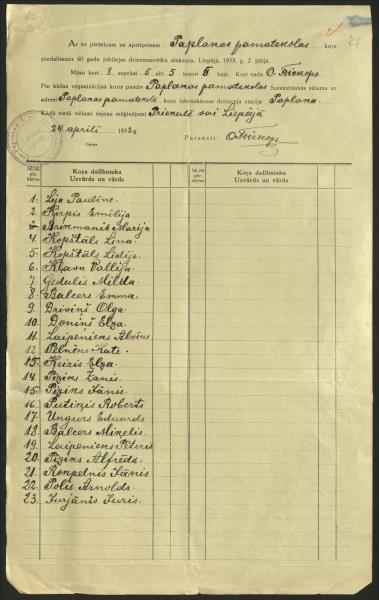 Ar šo pieteicam un apstiprinam Paplakas pamatskolas kora
piedalīšanos 60 gadu jubilejas dziesmusvētku atskaņās, Liepājā, 1933. g. 2. jūlijā.
Mūsu korī - 8. soprāni 5 alti 5 tenori 5 basi. Kori vada O.
Pie kādas organizācijas koris pastāv Paplakas pamatskolas Sarakstīšanās sūtama uz
adresi Paplakas pamatskolā kora izbraukšanas dzelzceļa stacija Paplaka.
Kādā vietā vēlami rajona mēģinājumi Priekulē vai Liepājā
24 aprīlī 1933.
Paraksti:
№№ pēc kārtas
Kora dalībnieku
Uzvārds un vārds
№№ pēc kārtas
Kora dalībnieku
Uzvārds un vārds
1. Leja Pauline.
2. Ķirpis Emilija
3. Marija
4. Kopštāls Lina.
5. Kopštāls Lidija.
6. Kļava Vallija.
7. Gedulis Milda
8. Balcers Emma.
9. Driviņš Olga.
10. Doniņš Elza.
11. Laipenieks Alvīns
12. Kate.
13. Ķeiris Elza.
14. Žanis.
15. Jānis.
16. Putiķis Roberts
17. Ungurs Eduards
18. Balcers Miķelis
19. Laipenieks Pēteris
20. Alfrēds.
21. Jānis
22. Polis Arnolds.
23. Jurjānis Juris.